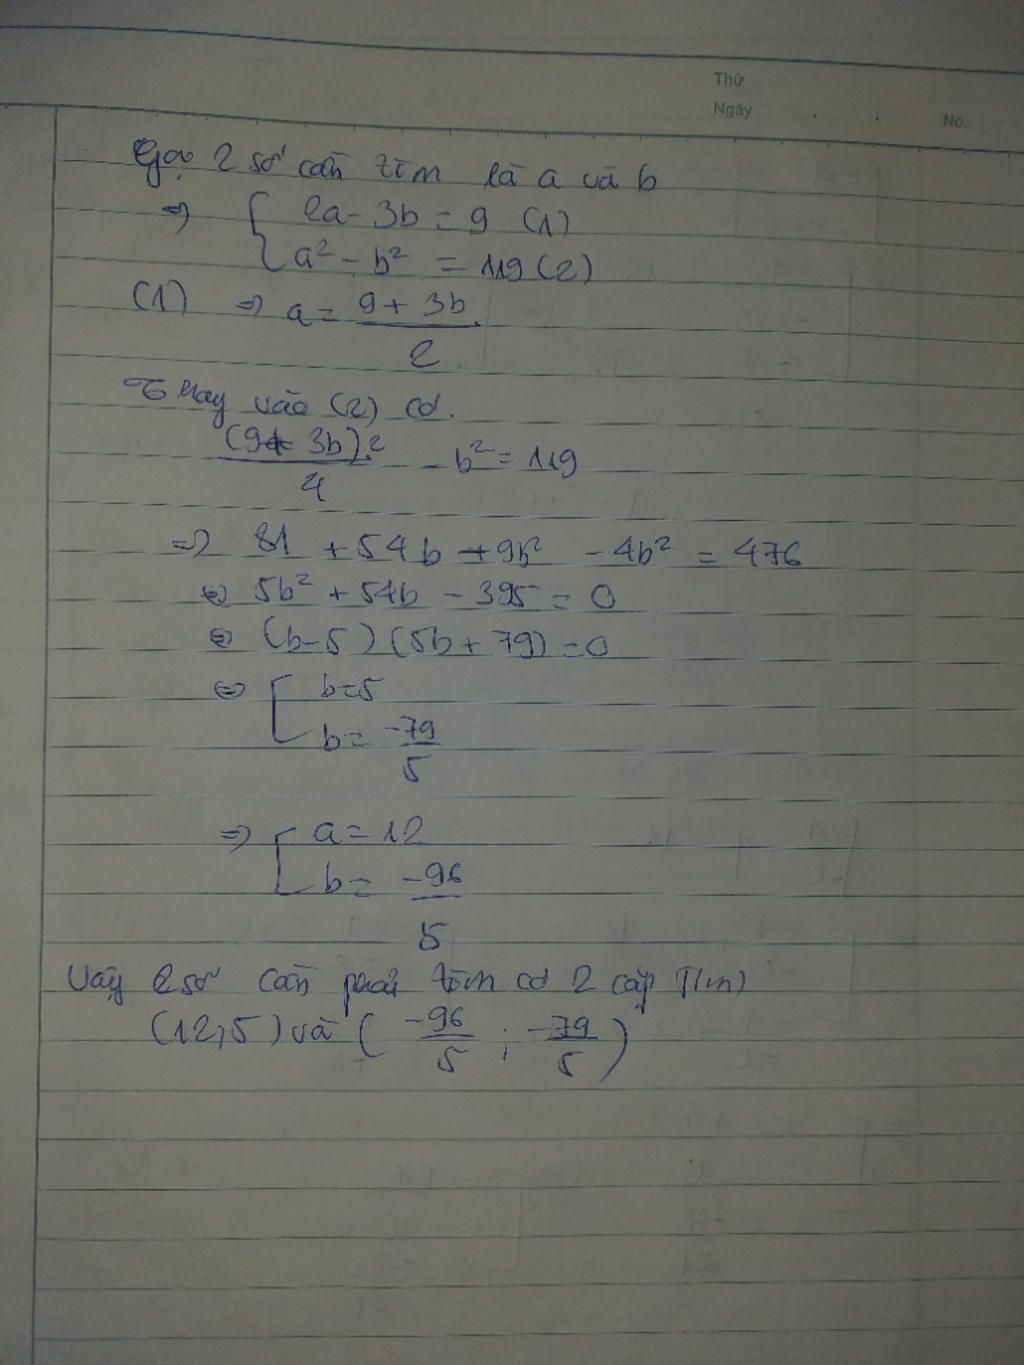 Thứ
Ngày
No.
Gọi 2 số cần tìm là a và b
=> { 2a - 3b = 9 (1)
a² - b² = 119 (2)
(1) => a = \frac{9 + 3b}{2}
Thay vào (2) có.
\frac{(9 + 3b)²}{4} - b² = 119
=> 81 + 54b + 9b² - 4b² = 476
<=> 5b² + 54b - 395 = 0
<=> (b - 5)(5b + 79) = 0
<=> [ b = 5
b = \frac{-79}{5}
=> [ a = 12
b = \frac{-96}{5}
Vậy 2 số cần phải tìm có 2 cặp T/m)
(12, 5) và ( \frac{-96}{5} ; \frac{-79}{5} )